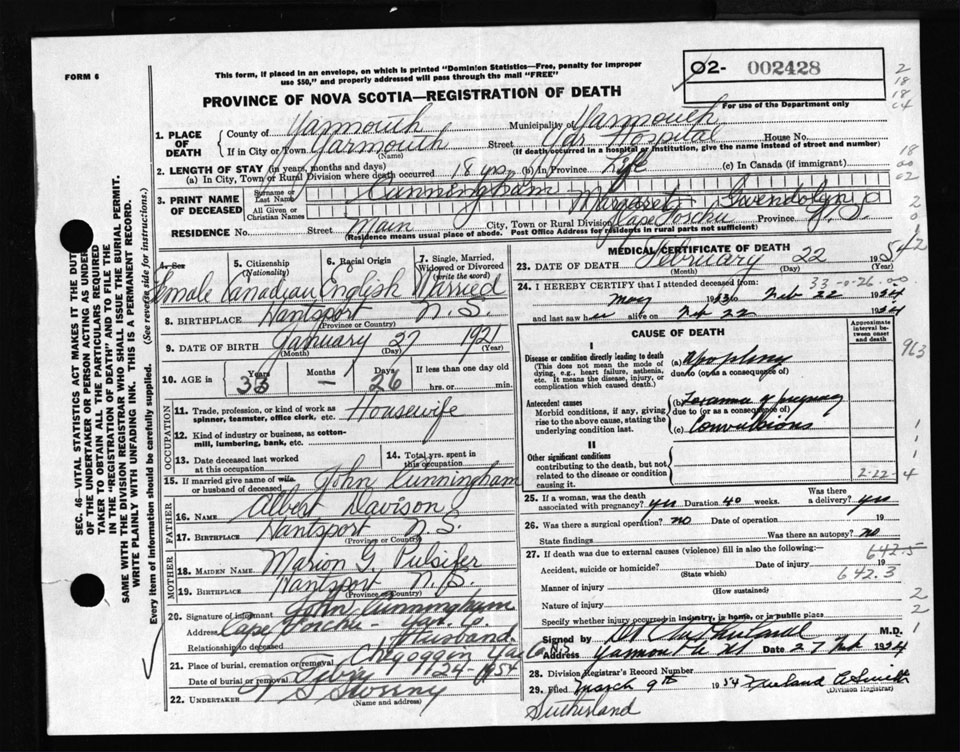 FORM 6
This form, if placed in an envelope, on which is printed "Dominion Statistics—Free, penalty for improper
use $50," and properly addressed will pass through the mail "FREE"
02- 002428
For use of the Department only
PROVINCE OF NOVA SCOTIA—REGISTRATION OF DEATH
1. PLACE OF DEATH
County of Yarmouth Municipality of Yarmouth
If in City or Town Yarmouth (Name) Street Yar Hospital House No.
(If death occurred in a hospital or institution, give the name instead of street and number)
2. LENGTH OF STAY (in years, months and days)
(a) In City, Town or Rural Division where death occurred 18 yrs. (b) In Province Life (c) In Canada (if immigrant)
3. PRINT NAME OF DECEASED
Surname or Last Name Cunningham
All Given or Christian Names Margaret Gwendolyn
RESIDENCE No. Street Main City, Town or Rural Division Cape Forchu Province N.S.
(Residence means usual place of abode. Post Office Address for residents in rural parts not sufficient)
4. Sex Female
5. Citizenship (Nationality) Canadian
6. Racial Origin English
7. Single, Married, Widowed or Divorced (write the word) Married
8. BIRTHPLACE Hantsport N.S.
(Province or Country)
9. DATE OF BIRTH January 27 1921
(Month) (Day) (Year)
10. AGE in Years 33 Months – Days 26 If less than one day old
hrs. or min.
OCCUPATION
11. Trade, profession, or kind of work as spinner, teamster, office clerk, etc. Housewife
12. Kind of industry or business, as cotton-mill, lumbering, bank, etc.
13. Date deceased last worked at this occupation
14. Total yrs. spent in this occupation
15. If married give name of wife or husband of deceased John Cunningham
FATHER
16. NAME Albert Davison
17. BIRTHPLACE Hantsport N.S.
(Province or Country)
MOTHER
18. MAIDEN NAME Marion G. Pulsifer
19. BIRTHPLACE Hantsport N.S.
(Province or Country)
20. Signature of informant John Cunningham
Address Cape Forchu - Yar. Co.
Relationship to deceased Husband.
21. Place of burial, cremation or removal Chegoggin Yar Co. N.S.
Date of burial or removal Feby 24-1954
22. UNDERTAKER Sweeny
(Name and address)
MEDICAL CERTIFICATE OF DEATH
23. DATE OF DEATH February 22 1954
(Month) (Day) (Year)
33-0-26-00
24. I HEREBY CERTIFY that I attended deceased from:
May 1953 to Feb 22 1954
and last saw her alive on Feb 22 1954
CAUSE OF DEATH
Approximate interval between onset and death
I
Disease or condition directly leading to death (a) Apoplexy
(This does not mean the mode of dying, e.g., heart failure, asthenia, etc. It means the disease, injury, or complication which caused death.)
due to (or as a consequence of)
Antecedent causes (b) Toxaemia of pregnancy
Morbid conditions, if any, giving rise to the above cause, stating the underlying condition last.
due to (or as a consequence of)
(c) Convulsions
II
Other significant conditions
contributing to the death, but not related to the disease or condition causing it
2-22-4
25. If a woman, was the death associated with pregnancy? yes Duration 40 weeks. Was there a delivery? yes
26. Was there a surgical operation? no Date of operation 19
State findings Was there an autopsy? no
27. If death was due to external causes (violence) fill in also the following:— 642.5
Accident, suicide or homicide? (State which) Date of injury 19
642.3
Manner of injury (How sustained)
Nature of injury
Specify whether injury occurred in industry, in home, or in public place
Signed by M.D.
Address Yarmouth NS Date 27 Feb 1954
28. Division Registrar's Record Number
29. Filed March 9th 1954
(Division Registrar)
Sutherland
SEC. 46—VITAL STATISTICS ACT MAKES IT THE DUTY
OF THE UNDERTAKER OR PERSON ACTING AS UNDER-
TAKER TO OBTAIN ALL THE PARTICULARS REQUIRED
IN THE "REGISTRATION OF DEATH" AND TO FILE THE
SAME WITH THE DIVISION REGISTRAR WHO SHALL ISSUE THE BURIAL PERMIT.
WRITE PLAINLY WITH UNFADING INK. THIS IS A PERMANENT RECORD.
Every item of information should be carefully supplied. (See reverse side for instructions.)
2
18
18
04
18
00
02
963